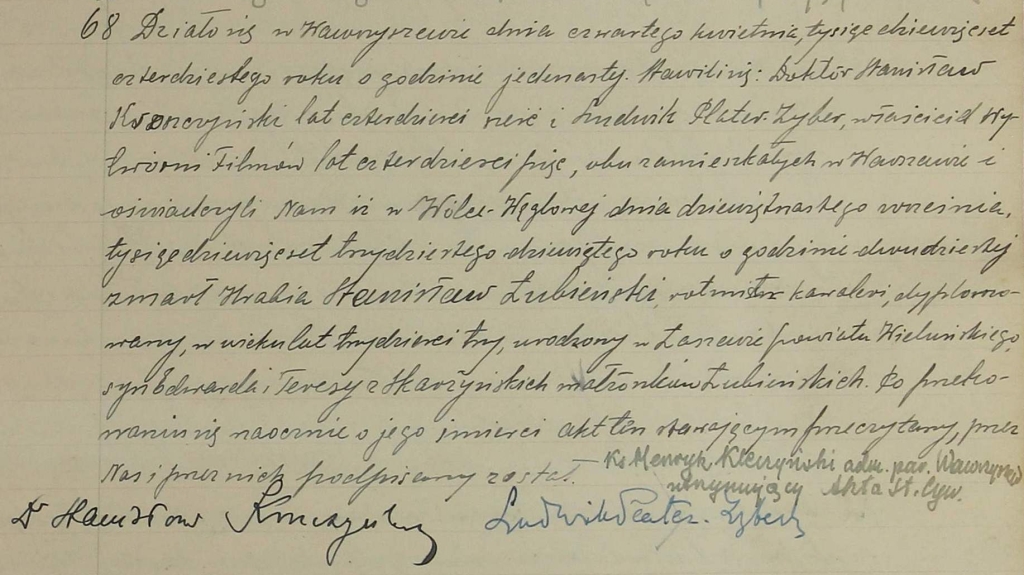 68 Działo się w Wawrzyszewie dnia czwartego kwietnia, tysiąc dziewięćset
czterdziestego roku o godzinie jedenastej. Stawili się: Doktór Stanisław
lat czterdzieści sześć i Ludwik Plater-Zyber, właściciel Wy-
twórni Filmów lat czterdzieści pięć, obu zamieszkałych w Warszawie i
oświadczyli Nam iż w Wólce-Węglowej dnia dziewiętnastego września,
tysiąc dziewięćset trzydziestego dziewiątego roku o godzinie dwudziestej
zmarł Hrabia Stanisław Łubieński, rotmistrz kawalerii, dyplomo-
wany, w wieku lat trzydzieści trzy, urodzony w Łaszewie powiatu Wieluńskiego,
syn Edwarda i Teresy z Skarżyńskich małżonków Łubieńskich. Po przeko-
naniu się naocznie o jego śmierci akt ten stawającym przeczytany, przez
Nas i przez nich podpisany został. Ks. Henryk Kleczyński adm. par. Wawrzyszew
utrzymujący Akta St. Cyw.
Dr Stanisław Ludwik Plater-Zyberk